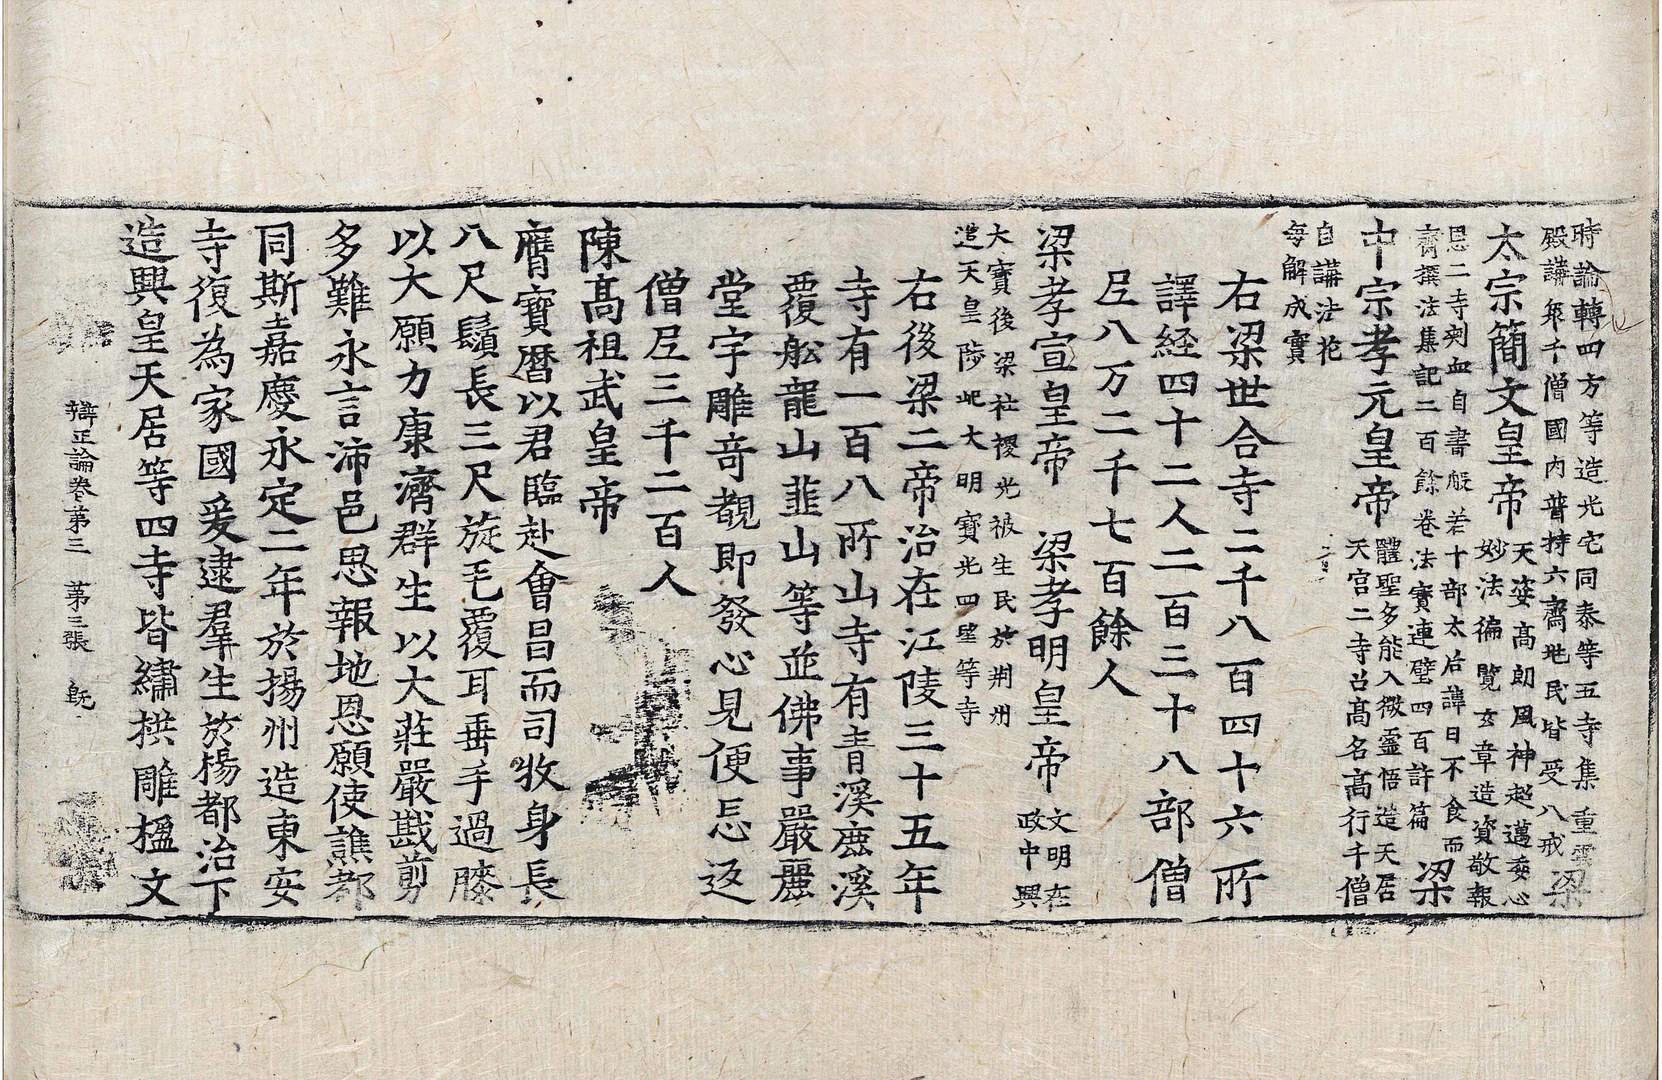 時論轉四方等造光宅同泰等五寺集重雲
殿講眾千僧國內普持六齋地民皆受八戒 梁
太宗簡文皇帝 天姿高朗風神超邁委心
妙法徧覽玄章造資敬報
恩二寺刺血自書般若十部太后諱日不食而
齋撰法集記二百餘卷法寶連璧四百許篇 梁
中宗孝元皇帝 體聖多能入微靈悟造天居
天宮二寺召高名高行千僧
自講法花
每解成實
右梁世合寺二千八百四十六所
譯経四十二人二百三十八部僧
尼八万二千七百餘人
梁孝宣皇帝 梁孝明皇帝 文明在
政中興
大寶後梁社稷光被生民於荊州
造天皇陟屺大明寶光四望等寺
右後梁二帝治在江陵三十五年
寺有一百八所山寺有青溪鹿溪
覆舩龍山韭山等並佛事嚴麗
堂宇雕奇覩即發心見便忘返
僧尼三千二百人
陳髙祖武皇帝
膺寶曆以君臨赴會昌而司牧身長
八尺鬚長三尺旋毛覆耳垂手過膝
以大願力康濟群生以大莊嚴戡剪
多難永言沛邑思報地恩願使譙都
同斯嘉慶永定二年於揚州造東安
寺復為家國爰逮羣生於楊都治下
造興皇天居等四寺皆繡栱雕楹文
辯正論卷第三 第三張 旣